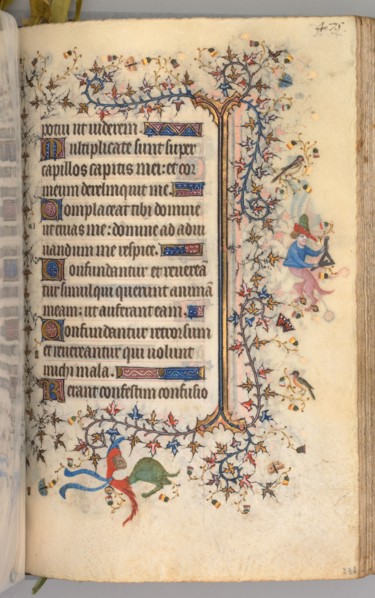 potui ut viderem.
Multiplicate sunt super
capillos capitis mei: et cor
meum dereliquit me.
Complaceat tibi domine
ut eruas me: domine ad adiu
uandum me respice.
Confundantur et reuerea
tur simul qui querunt animã
meam: ut auferant eam.
Confundantur retrorsum
et reuereantur qui uolunt
michi mala.
Ferant confestim confusio